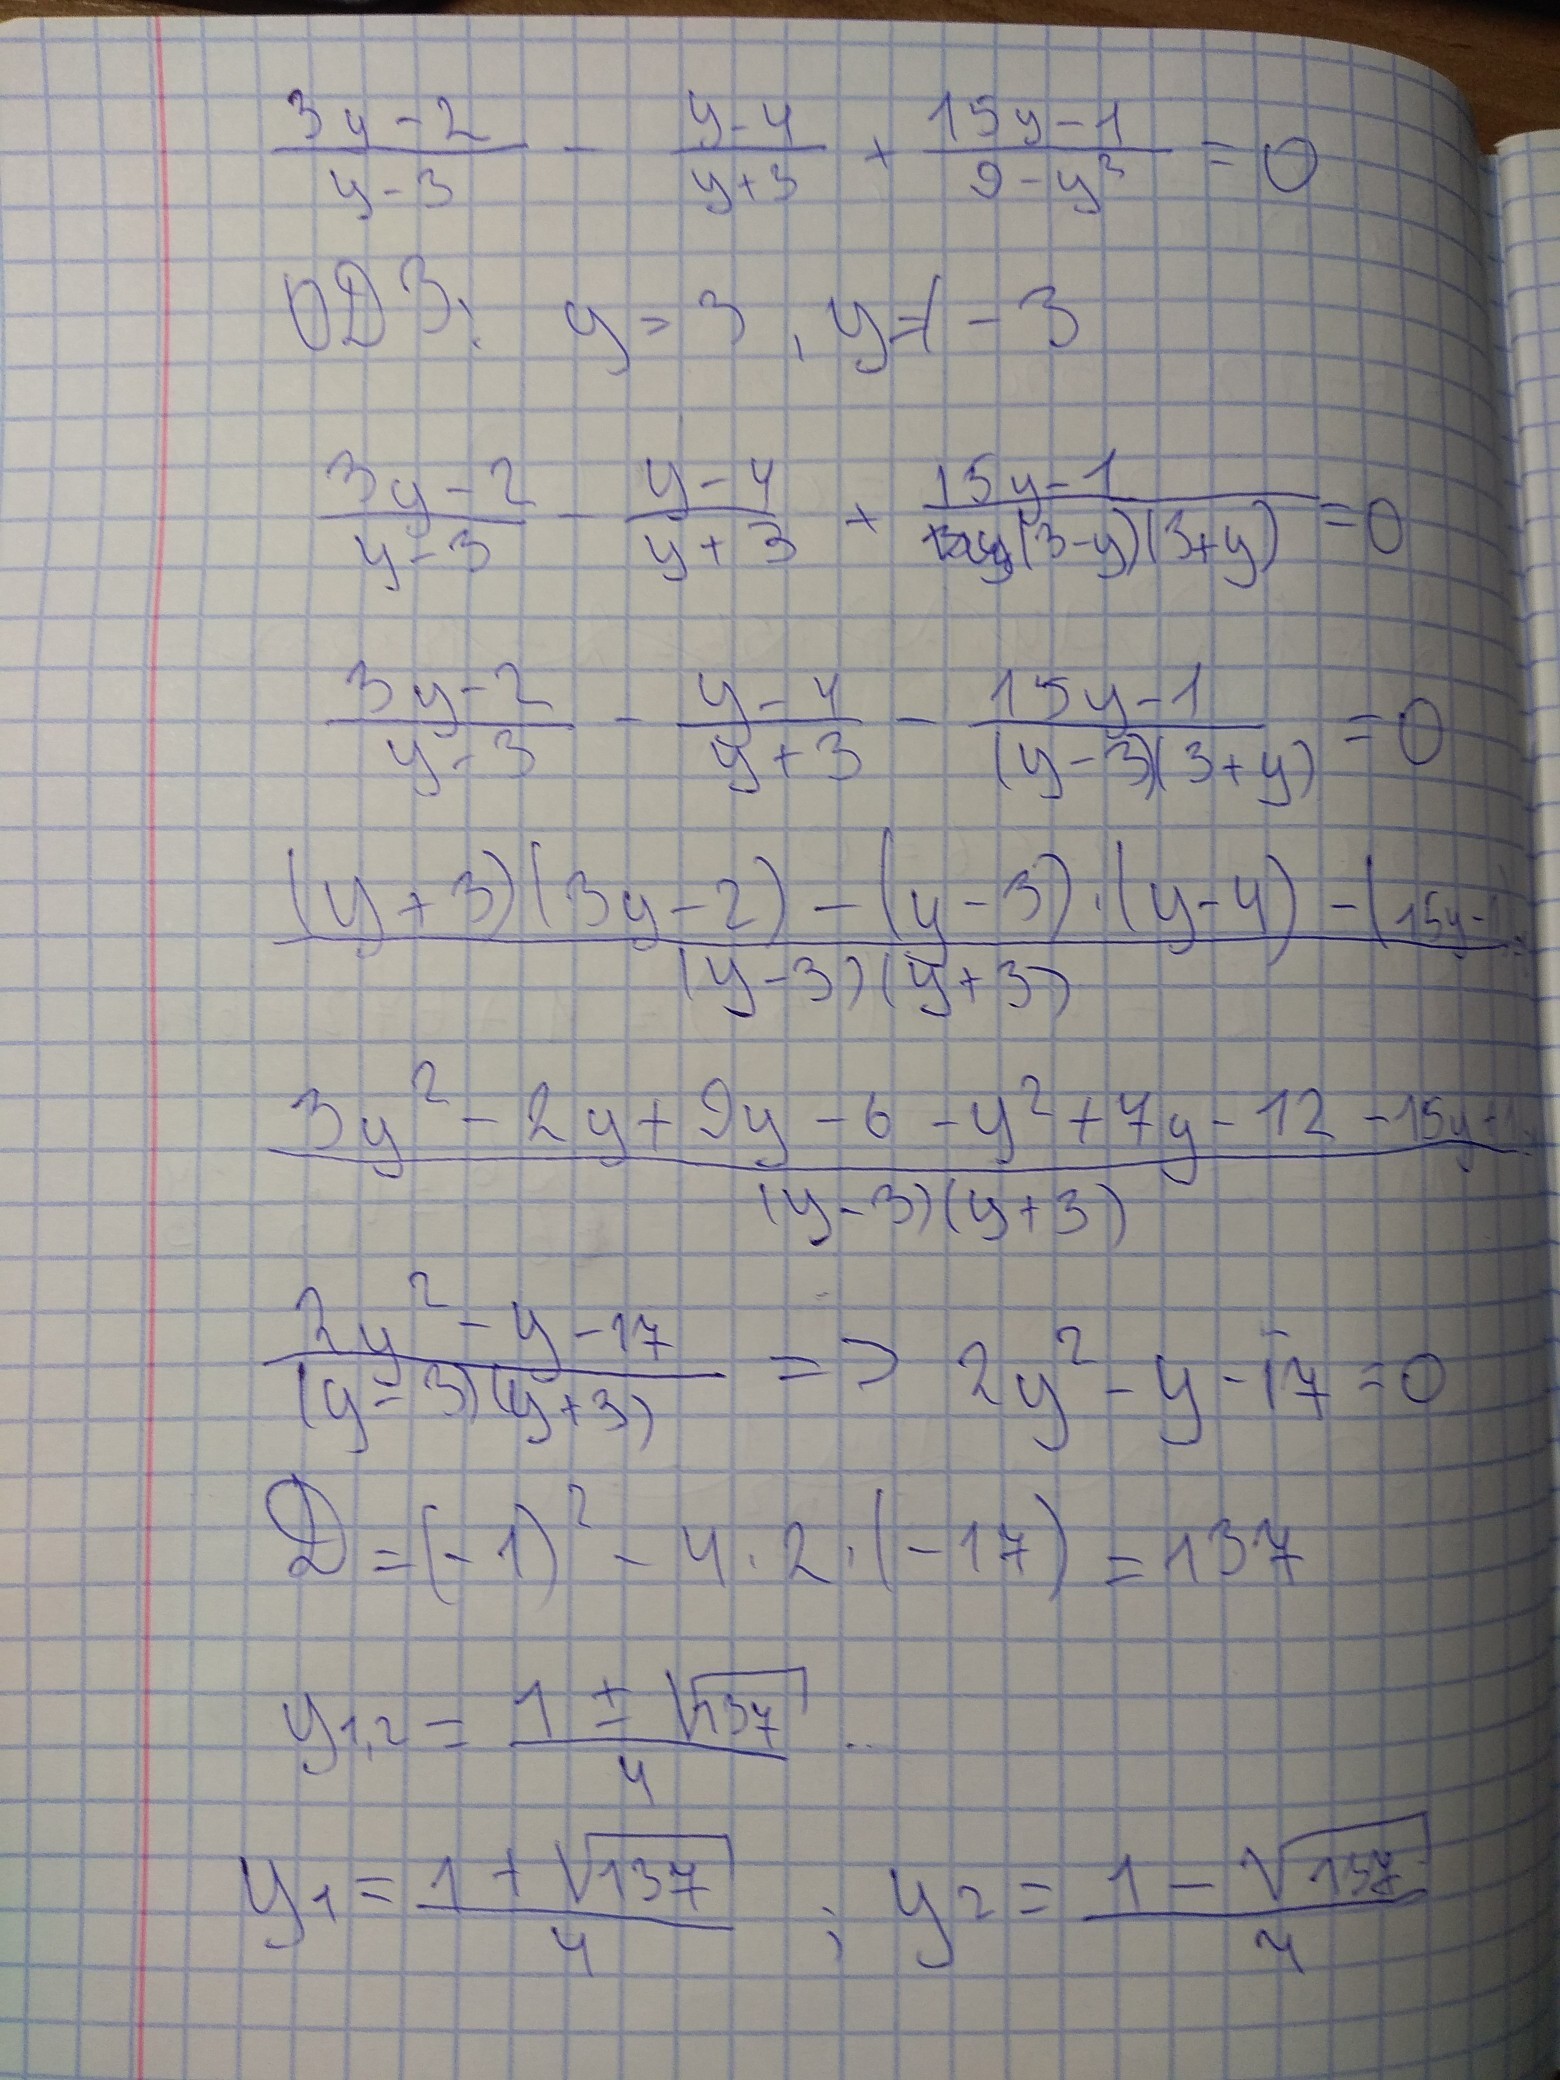 (3y-2)/(y-3) - (y-4)/(y+3) + (15y-1)/(9-y³) = 0
ОДЗ: y = 3, y ≠ -3
(3y-2)/(y-3) - (y-4)/(y+3) + (15y-1)/((3-y)(3+y)) = 0
(3y-2)/(y-3) - (y-4)/(y+3) - (15y-1)/((y-3)(3+y)) = 0
((y+3)(3y-2) - (y-3)·(y-4) - (15y-1)/((y-3)(y+3))
(3y² - 2y + 9y - 6 - y² + 7y - 12 - 15y-1)/((y-3)(y+3))
(2y² - y - 17)/((y-3)(y+3)) => 2y² - y - 17 = 0
D = (-1)² - 4·2·(-17) = 137
y1,2 = (1 ± √137)/4
y1 = (1 + √137)/4 ; y2 = (1 - √137)/4